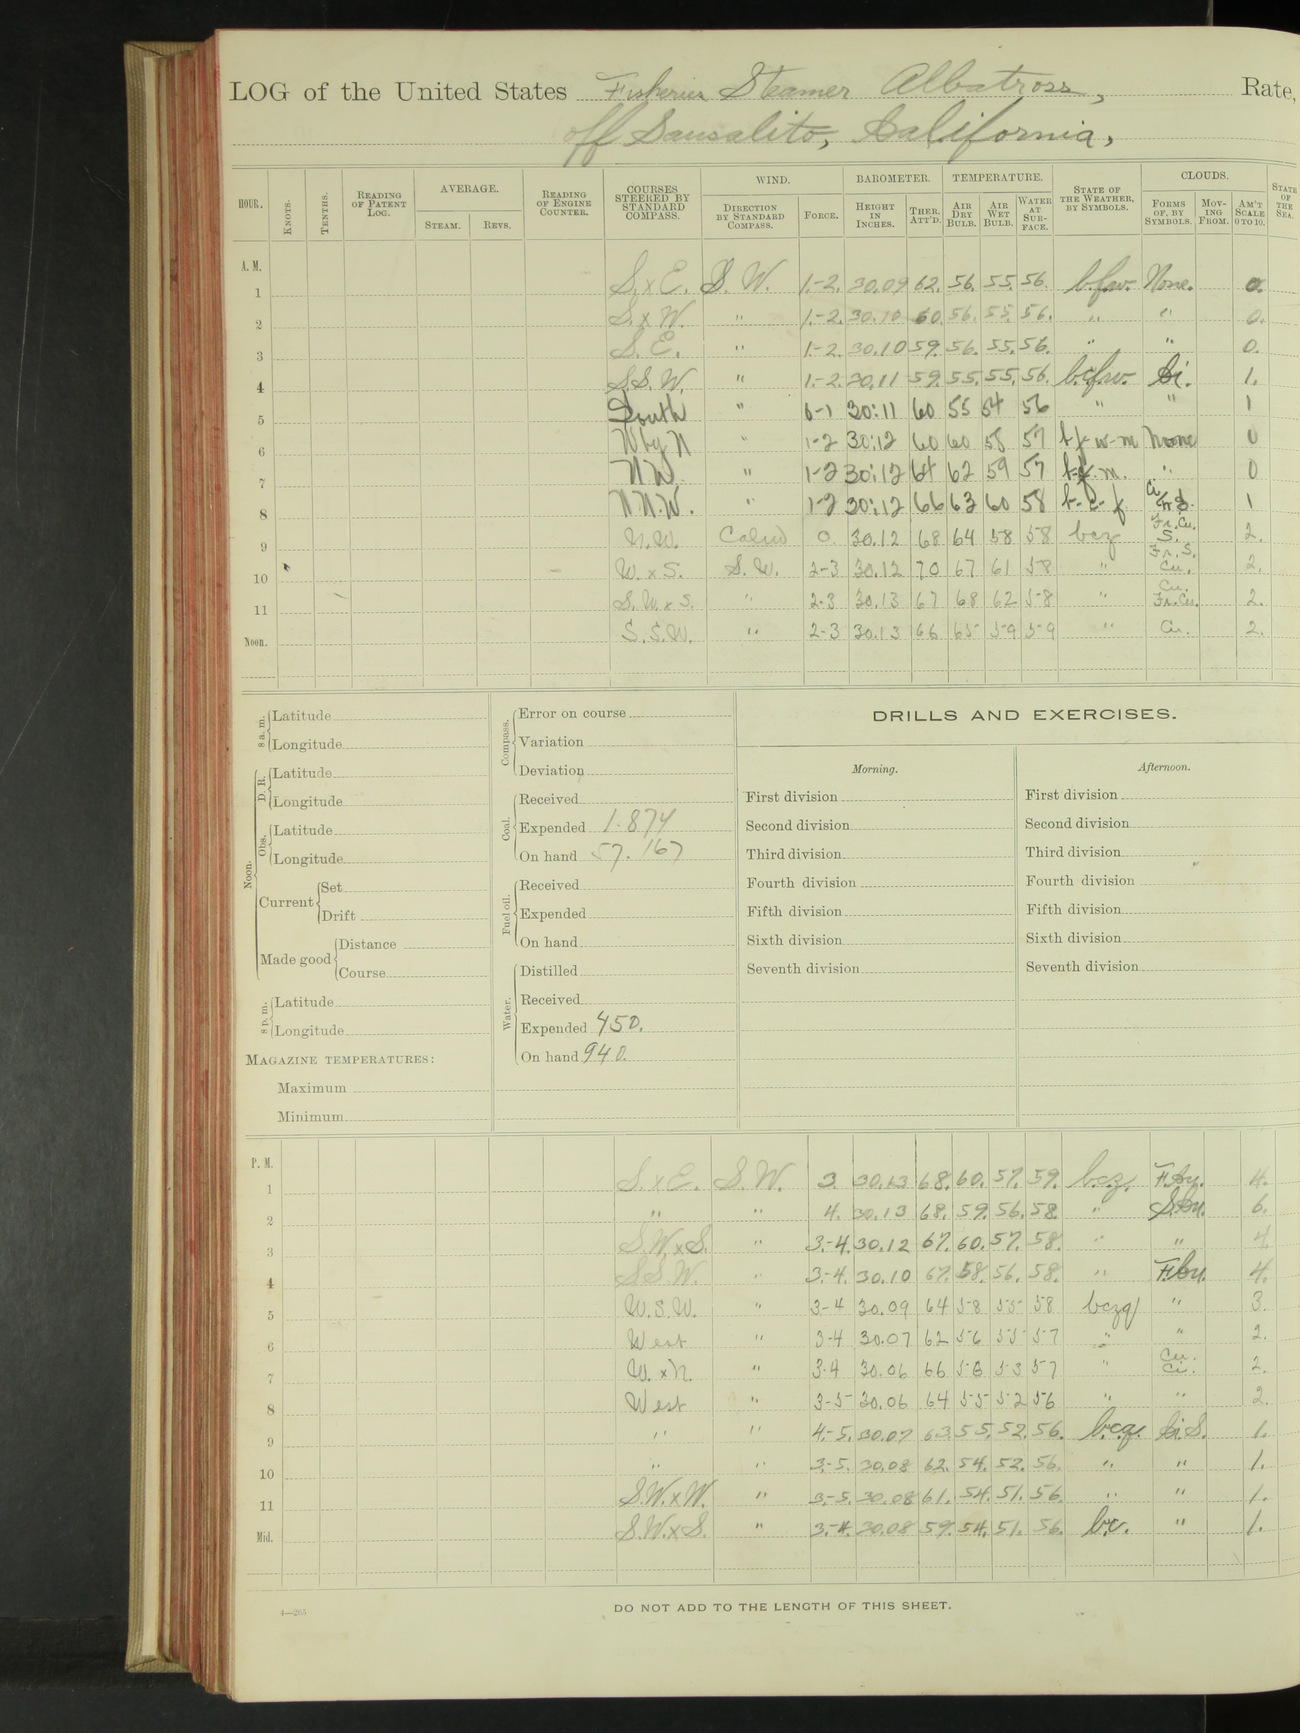 LOG of the United States Fisheries Steamer Albatross, Rate,
off Sausalito, California,
HOUR. KNOTS. TENTHS. READING OF PATENT LOG. AVERAGE. STEAM. REVS. READING OF ENGINE COUNTER. COURSES STEERED BY STANDARD COMPASS. WIND. DIRECTION BY STANDARD COMPASS. FORCE. BAROMETER. HEIGHT IN INCHES. THER. ATT'D. TEMPERATURE. AIR DRY BULB. AIR WET BULB. WATER AT SURFACE. STATE OF THE WEATHER, BY SYMBOLS. CLOUDS. FORMS OF, BY SYMBOLS. MOVING FROM. AM'T SCALE 0 TO 10. STATE OF THE SEA.
A. M.
1 S. x E. S. W. 1-2. 30.09 62. 56. 55. 56. b.f.w. None. 0.
2 S. x W. " 1-2. 30.10 60. 56. 55. 56. " " 0.
3 S. E. " 1-2. 30.10 59. 56. 55. 56. " " 0.
4 S.S. W. " 1-2. 30.11 59. 55. 55. 56. b.c.f.w. Ci. 1.
5 South " 0-1 30:11 60 55 54 56 " " 1
6 W by N " 1-2 30:12 60 60 58 57 b f w m None 0
7 N W. " 1-2 30:12 64 62 59 57 b.f. m. " 0
8 N.N.W. " 1-2 30:12 66 63 60 58 b- c- f Ci 1
9 N.W. Calm 0 30.12 68 64 58 58 bcz Fr. Cu. S. 2.
10 W. x S. S. W. 2-3 30.12 70 67 61 58 " Fr. S. Cu. 2.
11 S. W. x S. " 2-3 30.13 67 68 62 58 " Cu. Fr. Cu. 2.
Noon. S. S.W. " 2-3 30.13 66 65 59 59 " Cu. 2.
8 a. m. Latitude
Longitude
Noon. D. R. Latitude
Longitude
Obs. Latitude
Longitude
Current Set
Drift
Made good Distance
Course
8 p. m. Latitude
Longitude
MAGAZINE TEMPERATURES:
Maximum
Minimum
Compass. Error on course
Variation
Deviation
Coal. Received
Expended 1.874
On hand 57.167
Fuel oil. Received
Expended
On hand
Water. Distilled
Received
Expended 450.
On hand 940.
DRILLS AND EXERCISES.
Morning.
First division
Second division
Third division
Fourth division
Fifth division
Sixth division
Seventh division
Afternoon.
First division
Second division
Third division
Fourth division
Fifth division
Sixth division
Seventh division
P. M.
1 S. x E. S. W. 3. 30.13 68. 60. 57. 59. b.c.z. 4.
2 " " 4. 30.13 68. 59. 56. 58. " 6.
3 S.W. x S. " 3-4. 30.12 67. 60. 57. 58. " " 4.
4 S.S.W. " 3-4. 30.10 67. 58. 56. 58. " 4.
5 W.S.W. " 3-4 30.09 64 58 55 58 bczq " 3.
6 West " 3-4 30.07 62 56 55 57 " " 2.
7 W. x N. " 3-4 30.06 66 56 53 57 " Cu. Ci. 2.
8 West " 3-5 30.06 64 55 52 56 " " 2
9 " " 4-5. 30.07 63. 55. 52. 56. b.c.q. Ci. S. 1.
10 " " 3-5. 30.08 62. 54. 52. 56. " " 1.
11 S.W. x W. " 3-5. 30.08 61. 54. 51. 56 " " 1.
Mid. S.W. x S. " 3-4. 30.08 59. 54. 51. 56. b.c. " 1.
4—265
DO NOT ADD TO THE LENGTH OF THIS SHEET.